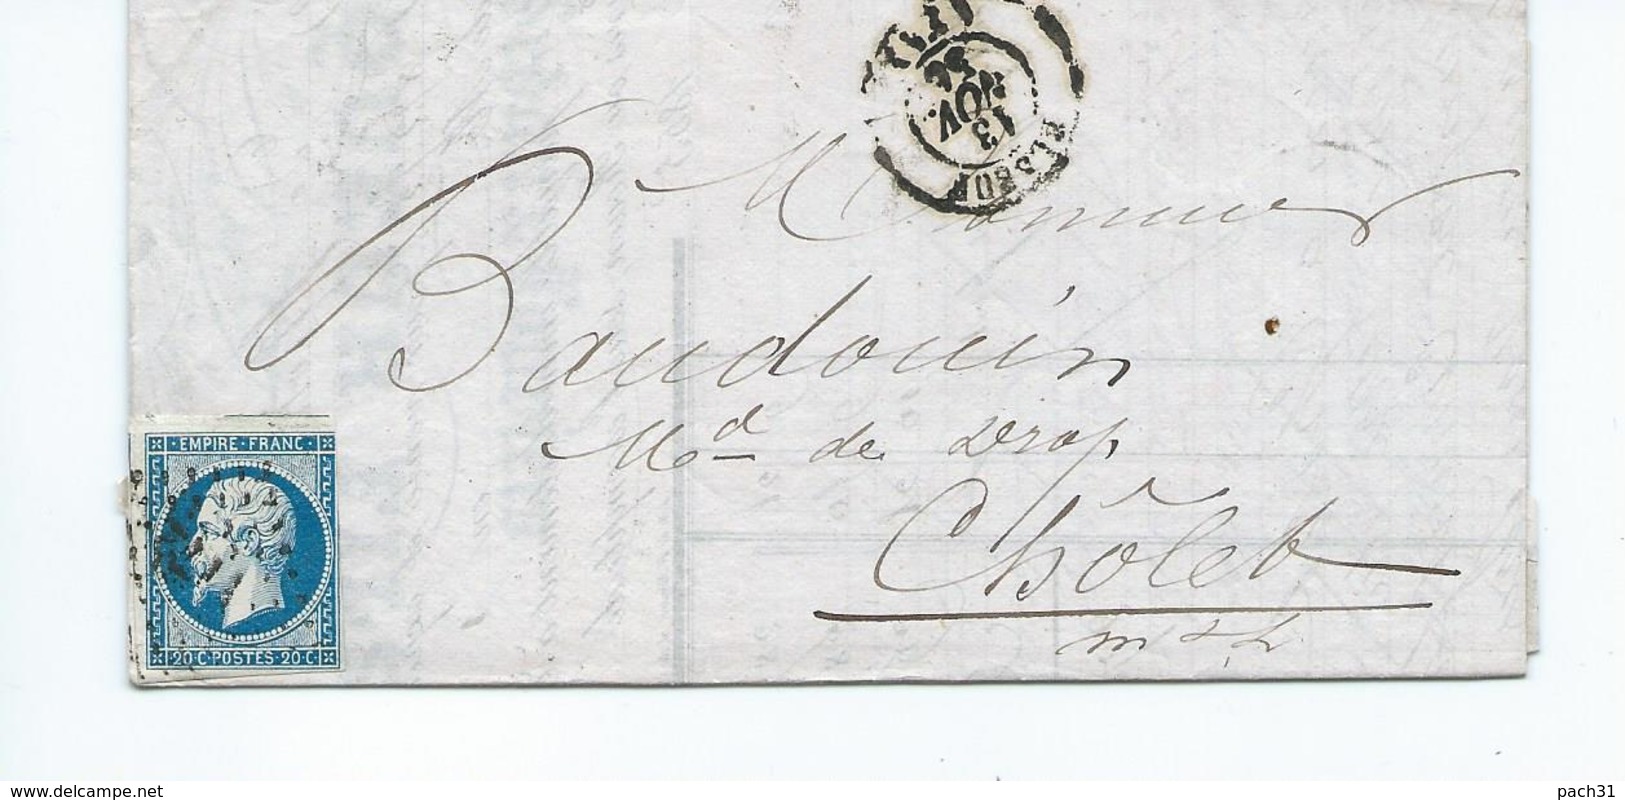 13
NOV.
56
Monsieur
Baudouin
Md de Drap
Chôlet
EMPIRE · FRANC ·
· 20 · C · POSTES · 20 · C ·
www.delcampe.net
pach31